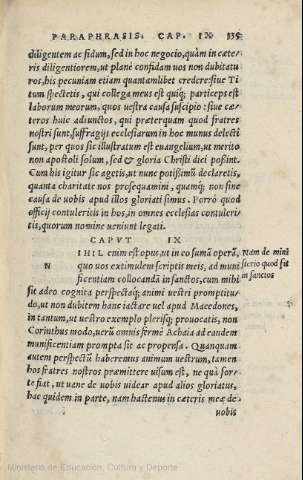 PARAPHRASIS. CAP. IX 335
diligentem ac fidum, sed in hoc negocio, quàm in cæte/
ris diligentiorem, ut planè confidam uos non dubitatu
ros, his pecuniam etiam quantamlibet credere: siue Ti
tum spectetis, qui collega meus est quiq; particeps est
laborum meorum, quos uestra causa suscipio: siue cæ/
teros huic adiunctos, qui præterquam quod fratres
nostri sunt, suffragijs ecclesiarum in hoc munus delecti
sunt, per quos sic illustratum est euangelium, ut merito
non apostoli solum, sed & gloria Christi dici possint.
Cum his igitur sic agetis, ut nunc potißimũ declaretis,
quanta charitate nos prosequamini, quamq; non sine
causa de uobis apud illos gloriati simus. Porrò quod
officij contuleritis in hos, in omnes ecclesias contuleri/
tis, quorum nomine ueniunt legati.
CAPVT IX
NIHIL enim est opus, ut in eo sumã operã,
quo uos extimulem scriptis meis, ad muni
ficentiam collocandã in sanctos, cum mihi
sit adeo cognita perspectaq; animi uestri promptitu/
do, ut non dubitem hanc iactare uel apud Macedones,
in tantum, ut uestro exemplo plerisq; prouocatis, non
Corinthus modò, uerũ omnis fermè Achaia ad eandem
munificentiam prompta sit ac propensa. Quanquam
autem perspectũ haberemus animum uestrum, tamen
hos fratres nostros præmittere uisum est, ne quà for/
te fiat, ut uane de uobis uidear apud alios gloriatus,
hac quidem in parte, nam hactenus in cæteris meæ de
uobis
Nam de mini
sterio quod fit
in sanctos
Ministerio de Educación, Cultura y Deporte